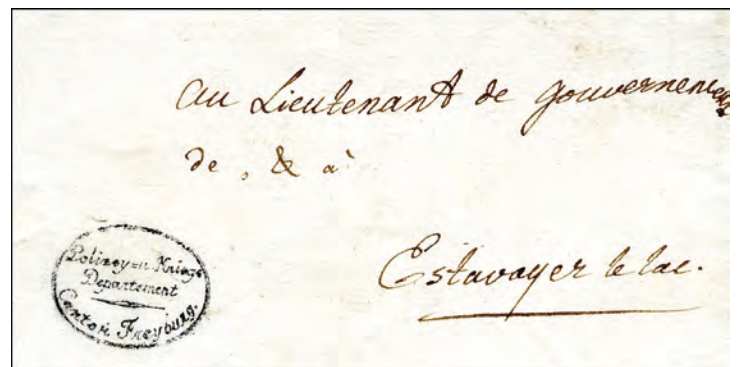 au Lieutenant de gouvernement
de, & à
Estavayer le lac.
Polizey=u Kriegs
Departement
Canton Freyburg.